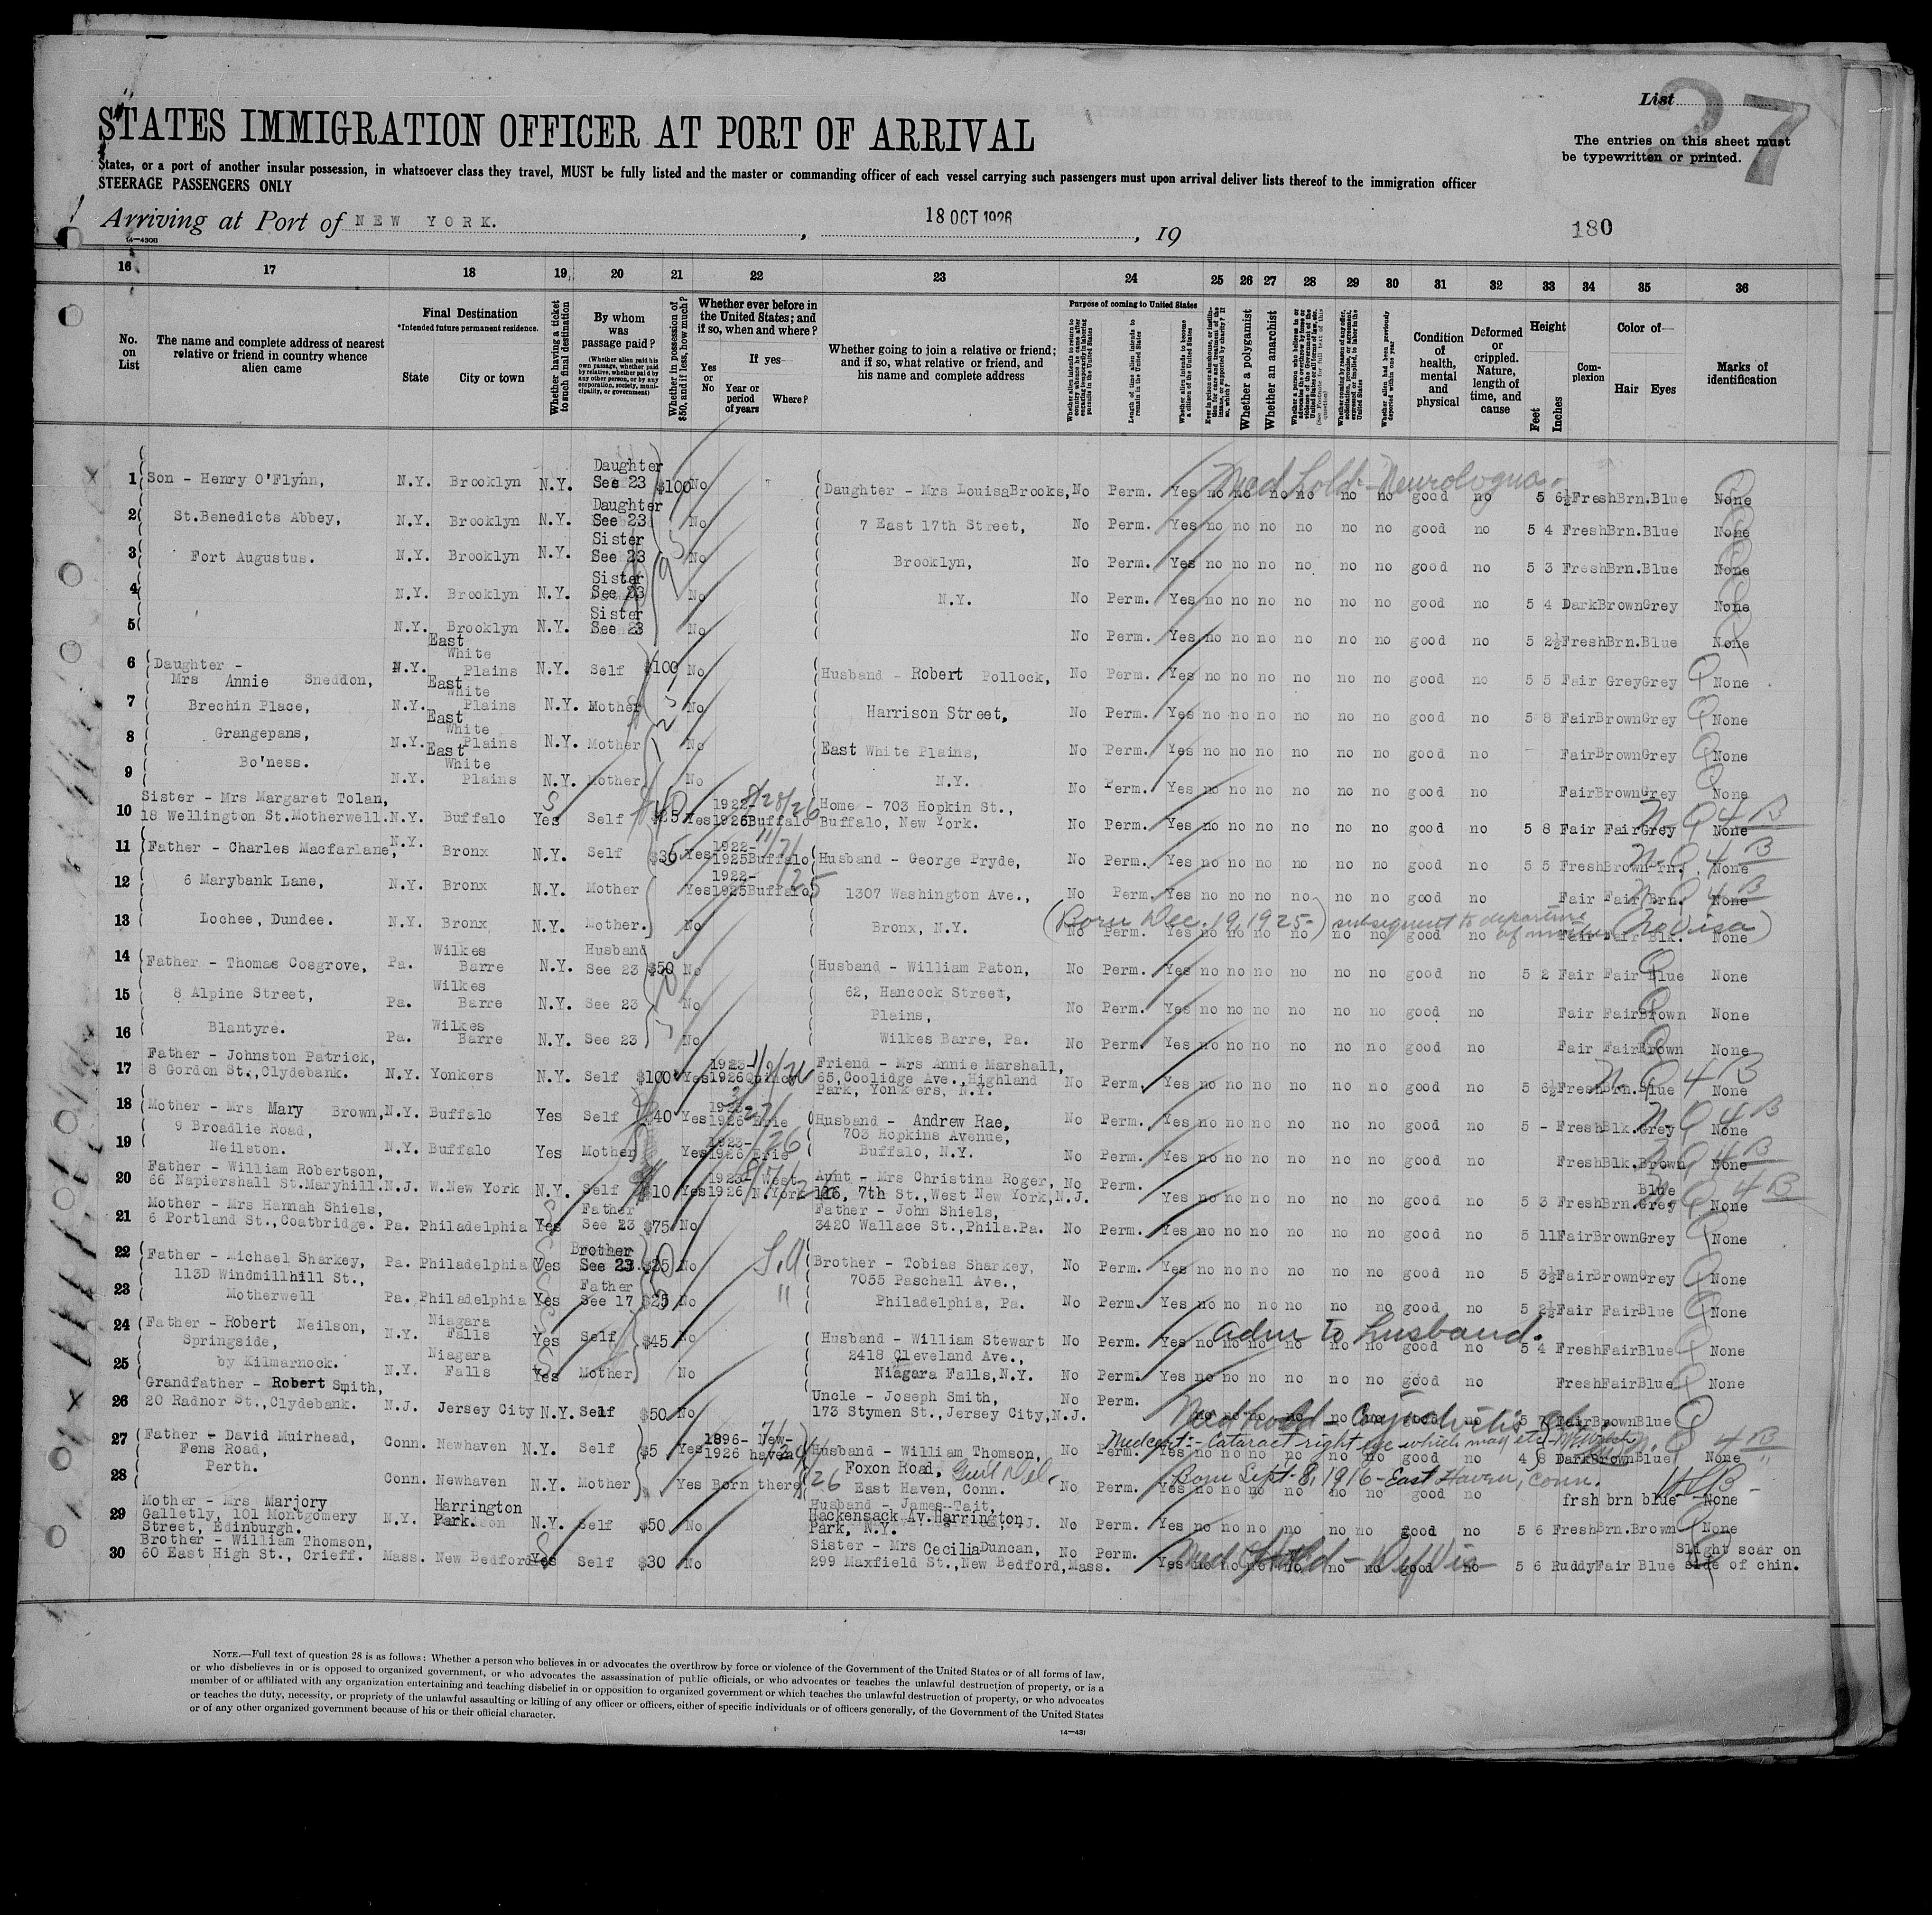 List
27
STATES IMMIGRATION OFFICER AT PORT OF ARRIVAL
The entries on this sheet must
be typewritten or printed.
States, or a port of another insular possession, in whatsoever class they travel, MUST be fully listed and the master or commanding officer of each vessel carrying such passengers must upon arrival deliver lists thereof to the immigration officer
STEERAGE PASSENGERS ONLY
Arriving at Port of NEW YORK. , 18 OCT 1926 , 19
180
14—430B
16 17 18 19 20 21 22 23 24 25 26 27 28 29 30 31 32 33 34 35 36
No. on List
The name and complete address of nearest relative or friend in country whence alien came
Final Destination
*Intended future permanent residence.
State City or town
Whether having a ticket to such final destination
By whom was passage paid?
(Whether alien paid his own passage, whether paid by relative, whether paid by any other person, or by any corporation, society, municipality, or government)
Whether in possession of $50, and if less, how much?
Whether ever before in the United States; and if so, when and where?
Yes or No
If yes—
Year or period of years
Where?
Whether going to join a relative or friend; and if so, what relative or friend, and his name and complete address
Purpose of coming to United States
Length of time alien intends to remain in the United States
Whether alien intends to become a citizen of the United States
Whether a polygamist
Whether an anarchist
Condition of health, mental and physical
Deformed or crippled. Nature, length of time, and cause
Height
Feet Inches
Complexion
Color of—
Hair Eyes
Marks of identification
1 Son - Henry O'Flynn, N.Y. Brooklyn N.Y. Daughter See 23 $100 No Daughter - Mrs LouisaBrooks, No Perm. Yes no no no no no no good no 5 6½ Fresh Brn. Blue None
Med Hold -
2 St.Benedicts Abbey, N.Y. Brooklyn N.Y. Daughter See 23 No 7 East 17th Street, No Perm. Yes no no no no no no good no 5 4 Fresh Brn. Blue None
3 Fort Augustus. N.Y. Brooklyn N.Y. Sister See 23 No Brooklyn, No Perm. Yes no no no no no no good no 5 3 Fresh Brn. Blue None
4 N.Y. Brooklyn N.Y. Sister See 23 No N.Y. No Perm. Yes no no no no no no good no 5 4 Dark Brown Grey None
5 N.Y. Brooklyn N.Y. Sister See 23 No No Perm. Yes no no no no no no good no 5 2½ Fresh Brn. Blue None
6 Daughter - Mrs Annie Sneddon, N.Y. East White Plains N.Y. Self $100 No Husband - Robert Pollock, No Perm. Yes no no no no no no good no 5 5 Fair Grey Grey None
7 Brechin Place, N.Y. East White Plains N.Y. Mother No Harrison Street, No Perm. Yes no no no no no no good no 5 8 Fair Brown Grey None
8 Grangepans, N.Y. East White Plains N.Y. Mother No East White Plains, No Perm. Yes no no no no no no good no Fair Brown Grey None
9 Bo'ness. N.Y. East White Plains N.Y. Mother No N.Y. No Perm. Yes no no no no no no good no Fair Brown Grey None
10 Sister - Mrs Margaret Tolan, 18 Wellington St.Motherwell. N.Y. Buffalo Yes Self $25 Yes 1922-1926 Buffalo 8/28/26 Home - 703 Hopkin St., Buffalo, New York. No Perm. Yes no no no no no no good no 5 8 Fair Fair Grey None
11 Father - Charles Macfarlane, N.Y. Bronx N.Y. Self Yes 1922-1925 Buffalo Husband - George Pryde, No Perm. Yes no no no no no no good no 5 5 Fresh Brown Brn. None
12 6 Marybank Lane, N.Y. Bronx N.Y. Mother Yes 1922-1925 Buffalo 1307 Washington Ave., No Perm. Yes no no no no no no good no Fair Fair Brn. None
13 Lochee, Dundee. N.Y. Bronx N.Y. Mother. No Bronx, N.Y. No Perm. Yes no no no no no no good no Fair Fair Blk. None
(Born Dec. 19, 1925-) subsequent to departure of mother (No Visa)
14 Father - Thomas Cosgrove, Pa. Wilkes Barre N.Y. Husband See 23 $50 No Husband - William Paton, No Perm. Yes no no no no no no good no 5 2 Fair Fair Blue None
15 8 Alpine Street, Pa. Wilkes Barre N.Y. See 23 No 62, Hancock Street, Plains, No Perm. Yes no no no no no no good no Fair Fair Brown None
16 Blantyre. Pa. Wilkes Barre N.Y. See 23 No Wilkes Barre, Pa. No Perm. Yes no no no no no no good no Fair Fair Brown None
17 Father - Johnston Patrick, 8 Gordon St.,Clydebank. N.Y. Yonkers N.Y. Self $100 Yes 1923-1926 Quincy Friend - Mrs Annie Marshall, 65,Coolidge Ave.,Highland Park, Yonkers, N.Y. No Perm. Yes no no no no no no good no 5 6½ Fresh Brn. Blue None
18 Mother - Mrs Mary Brown, N.Y. Buffalo Yes Self $40 Yes 1926 Erie Husband - Andrew Rae, No Perm. Yes no no no no no no good no 5 - Fresh Blk. Grey None
19 9 Broadlie Road, Neilston. N.Y. Buffalo Yes Mother Yes 1923-1926 Erie 703 Hopkins Avenue, Buffalo, N.Y. No Perm. Yes no no no no no no good no Fresh Blk. Brown None
20 Father - William Robertson, 66 Napiershall St.Maryhill. N.J. W.New York N.Y. Self $10 Yes 1923 1926 West N.York Aunt - Mrs Christina Roger, 7th St.,West New York,N.J. No Perm. Yes no no no no no no good no 5 3 Fresh Brn. Blue Grey None
21 Mother - Mrs Hannah Shiels, 6 Portland St.,Coatbridge. Pa. Philadelphia Yes Father See 23 $75 No Father - John Shiels, 3420 Wallace St.,Phila.Pa. No Perm. Yes no no no no no no good no 5 11 Fair Brown Grey None
22 Father - Michael Sharkey, Pa. Philadelphia Yes Brother See 23 $25 No Brother - Tobias Sharkey, No Perm. Yes no no no no no no good no 5 3½ Fair Brown Grey None
23 113D Windmillhill St., Motherwell Pa. Philadelphia Yes Father See 17 $25 No 7055 Paschall Ave., Philadelphia, Pa. No Perm. Yes no no no no no no good no 5 2½ Fair Fair Blue None
24 Father - Robert Neilson, Springside, N.Y. Niagara Falls Yes Self $45 No Husband - William Stewart 2418 Cleveland Ave., No Perm. Yes no no no no no no good no 5 4 Fresh Fair Blue None
adm to husband.
25 by Kilmarnock. N.Y. Niagara Falls Yes Mother No Niagara Falls,N.Y. No Perm. Yes no no no no no no good no Fresh Fair Blue None
26 Grandfather - Robert Smith, 20 Radnor St.,Clydebank. N.J. Jersey City N.Y. Self $50 No Uncle - Joseph Smith, 173 Stymen St.,Jersey City,N.J. No Perm. no no no no no good no 5 7 Fair Brown Blue
Med hold - Conjunctivitis
27 Father - David Muirhead, Fens Road, Conn. Newhaven N.Y. Self $5 Yes 1896-1926 New-haven Husband - William Thomson, No Perm. Yes no no no no no no good no 4 8 Dark Brown Blue None
Med cert:- Cataract right eye which may etc
28 Perth. Conn. Newhaven N.Y. Mother Yes Born there Foxon Road, East Haven, Conn. No Perm. Yes no no no no no no good no frsh brn blue None
Born Sept. 8, 1916 - East Haven, Conn.
29 Mother - Mrs Marjory Galletly, 101 Montgomery Street, Edinburgh. N.Y. Harrington Park. N.Y. Self $50 No Husband - James Tait, Hackensack Av.Harrington Park, N.Y. No Perm. Yes no no no no no no good no 5 6 Fresh Brn. Brown None
30 Brother - William Thomson, 60 East High St., Crieff. Mass. New Bedford Yes Self $30 No Sister - Mrs Cecilia Duncan, 299 Maxfield St.,New Bedford,Mass. No Perm. Yes no no no no no no good no 5 6 Ruddy Fair Blue Slight scar on side of chin.
Med Hold - Def Vis
NOTE.—Full text of question 28 is as follows: Whether a person who believes in or advocates the overthrow by force or violence of the Government of the United States or of all forms of law,
or who disbelieves in or is opposed to organized government, or who advocates the assassination of public officials, or who advocates or teaches the unlawful destruction of property, or is a
member of or affiliated with any organization entertaining and teaching disbelief in or opposition to organized government or which teaches the unlawful destruction of property, or who advocates
or teaches the duty, necessity, or propriety of the unlawful assaulting or killing of any officer or officers, either of specific individuals or of officers generally, of the Government of the United States
or of any other organized government because of his or their official character.
14—431